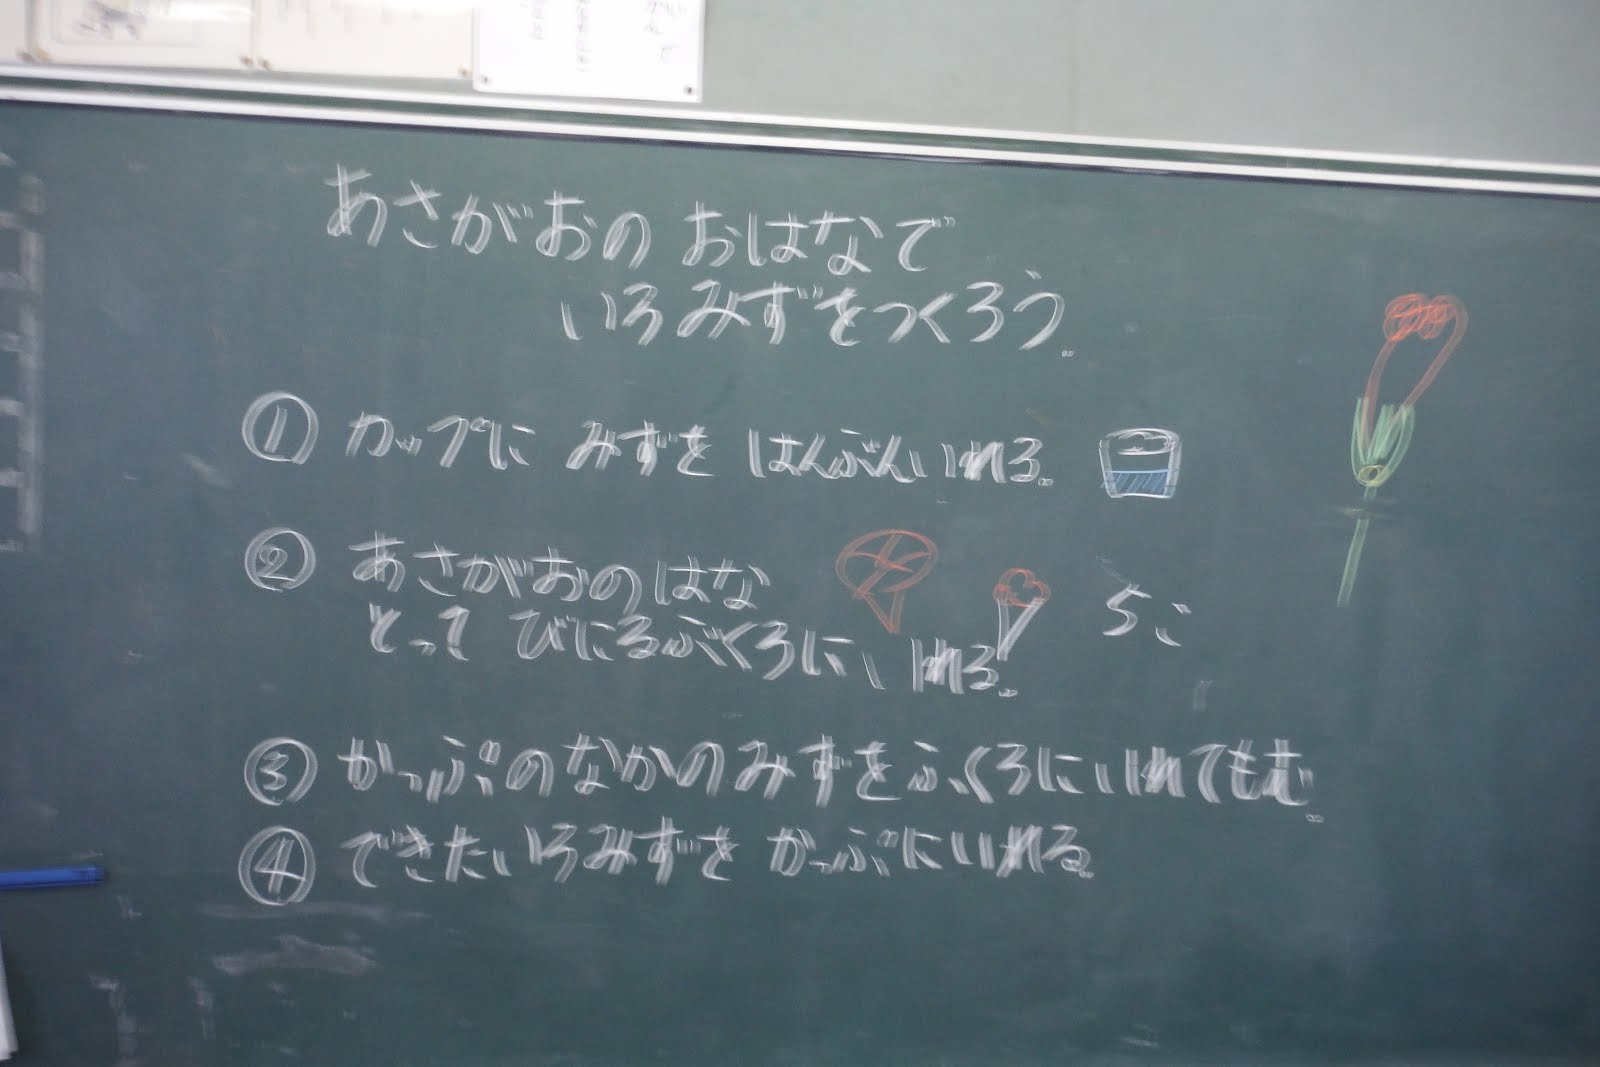 あさがおの おはなで
いろみずをつくろう。
① カップに みずを はんぶんいれる。
② あさがおのはな 5こ
とって びにるぶくろに、いれる。
③ かっぷのなかのみずをふくろにいれてもむ。
④ できたいろみずを かっぷにいれる。